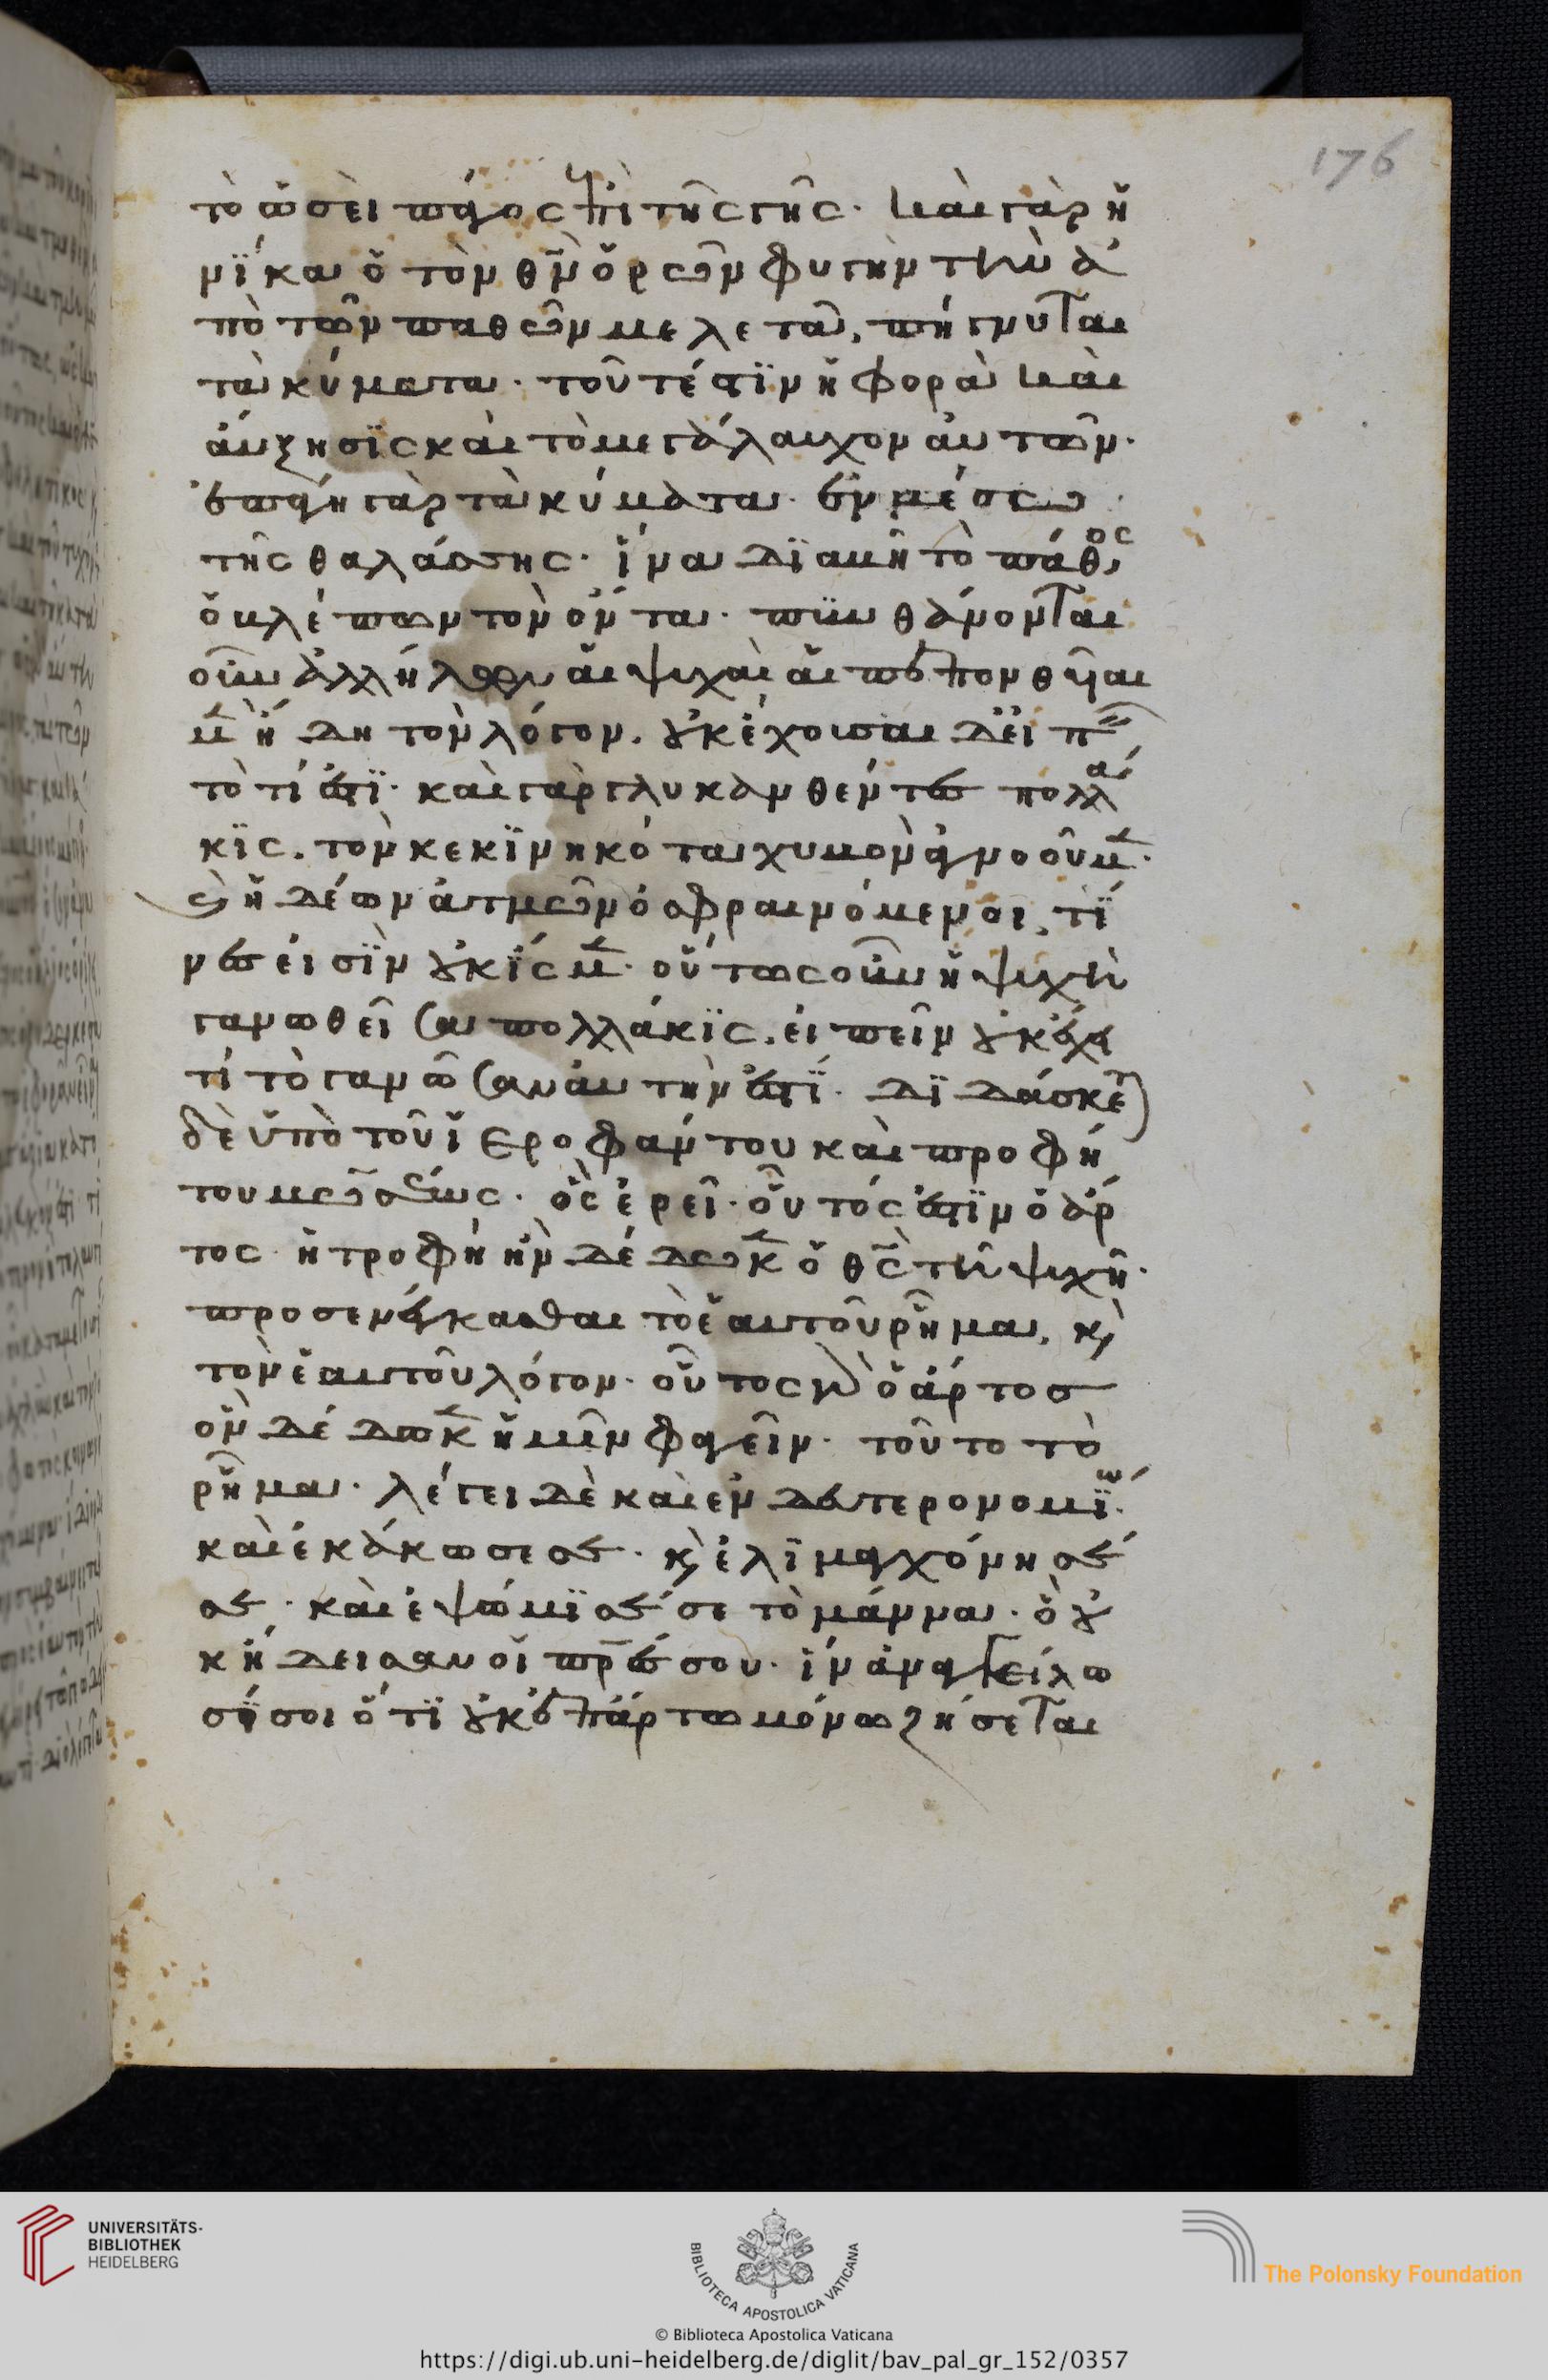 176
τὸ ὡσεὶ πάγος ἐπὶ τῆς γῆς· καὶ γὰρ ἡ
νίκα ὁ τὸν θν ὁρῶν φυγὴν τὴν ἀ
πὸ τῶν παθῶν μελετᾶ, πήγνυται
τὰ κύματα· τουτέστιν ἡ φορὰ καὶ
ἄυξησις καὶ τὸ μεγάλαυχον ἀυτῶν·
ἐπάγη γὰρ τὰ κύματα ἐν μέσω
τῆς θαλάσσης· ἵνα διαβῆ τὸ πάθος
ὁ βλέπων τὸν ὄντα· πυνθάνονται
οὖν ἀλλήλων αἱ ψυχαὶ αἱ πεπονθυῖαι
μὲν ἤδη τὸν λόγον, οὐκ ἔχουσαι δ εἰπεῖν
τὸ τί ἐστι· καὶ γὰρ γλυκανθέντες πολλά
κις, τὸν κεκινηκότα χυμὸν ἀγνοοῦμεν·
καὶ ἡδέων ἀτμῶν ὀσφραινόμενοι, τί
νες εἰσὶν οὐκ ἴσμεν· οὕτως οὖν ἡ ψυχὴ
γανωθεῖσα πολλάκις, εἰπεῖν οὐκ ἔχει
τί τὸ γανῶσαν ἀυτὴν ἐστί· διδάσκεται
δὲ ὑπὸ τοῦ ἱεροφάντου καὶ προφή
του μωσέως· ὃς ἐρεῖ· οὗτός ἐστιν ὁ ἄρ
τος ἡ τροφή ἣν δέδωκεν ὁ θς τῆ ψυχῆ·
προσενέγκασθαι τὸ ἑαυτοῦ ῥῆμα, κὶ
τὸν ἑαυτοῦ λόγον· οὗτος γὰρ ὁ ἄρτος
ὃν δέδωκεν ἡμῖν φαγεῖν· τοῦτο τὸ
ῥῆμα· λέγει δὲ καὶ ἐν δευτερονομίω·
καὶ ἐκάκωσέ σε· κὶ ἐλιμαγχόνησέ
σε· καὶ ἐψώμισέ σε τὸ μάννα· ὃ οὐ
κ ἤδεισαν οἱ πρές σου· ἵν ἀναγγείλω
σί σοι ὅτι οὐκ ἐπ ἄρτω μόνω ζήσεται
UNIVERSITÄTS-
BIBLIOTHEK
HEIDELBERG
BIBLIOTECA APOSTOLICA VATICANA
The Polonsky Foundation
© Biblioteca Apostolica Vaticana
https://digi.ub.uni-heidelberg.de/diglit/bav_pal_gr_152/0357